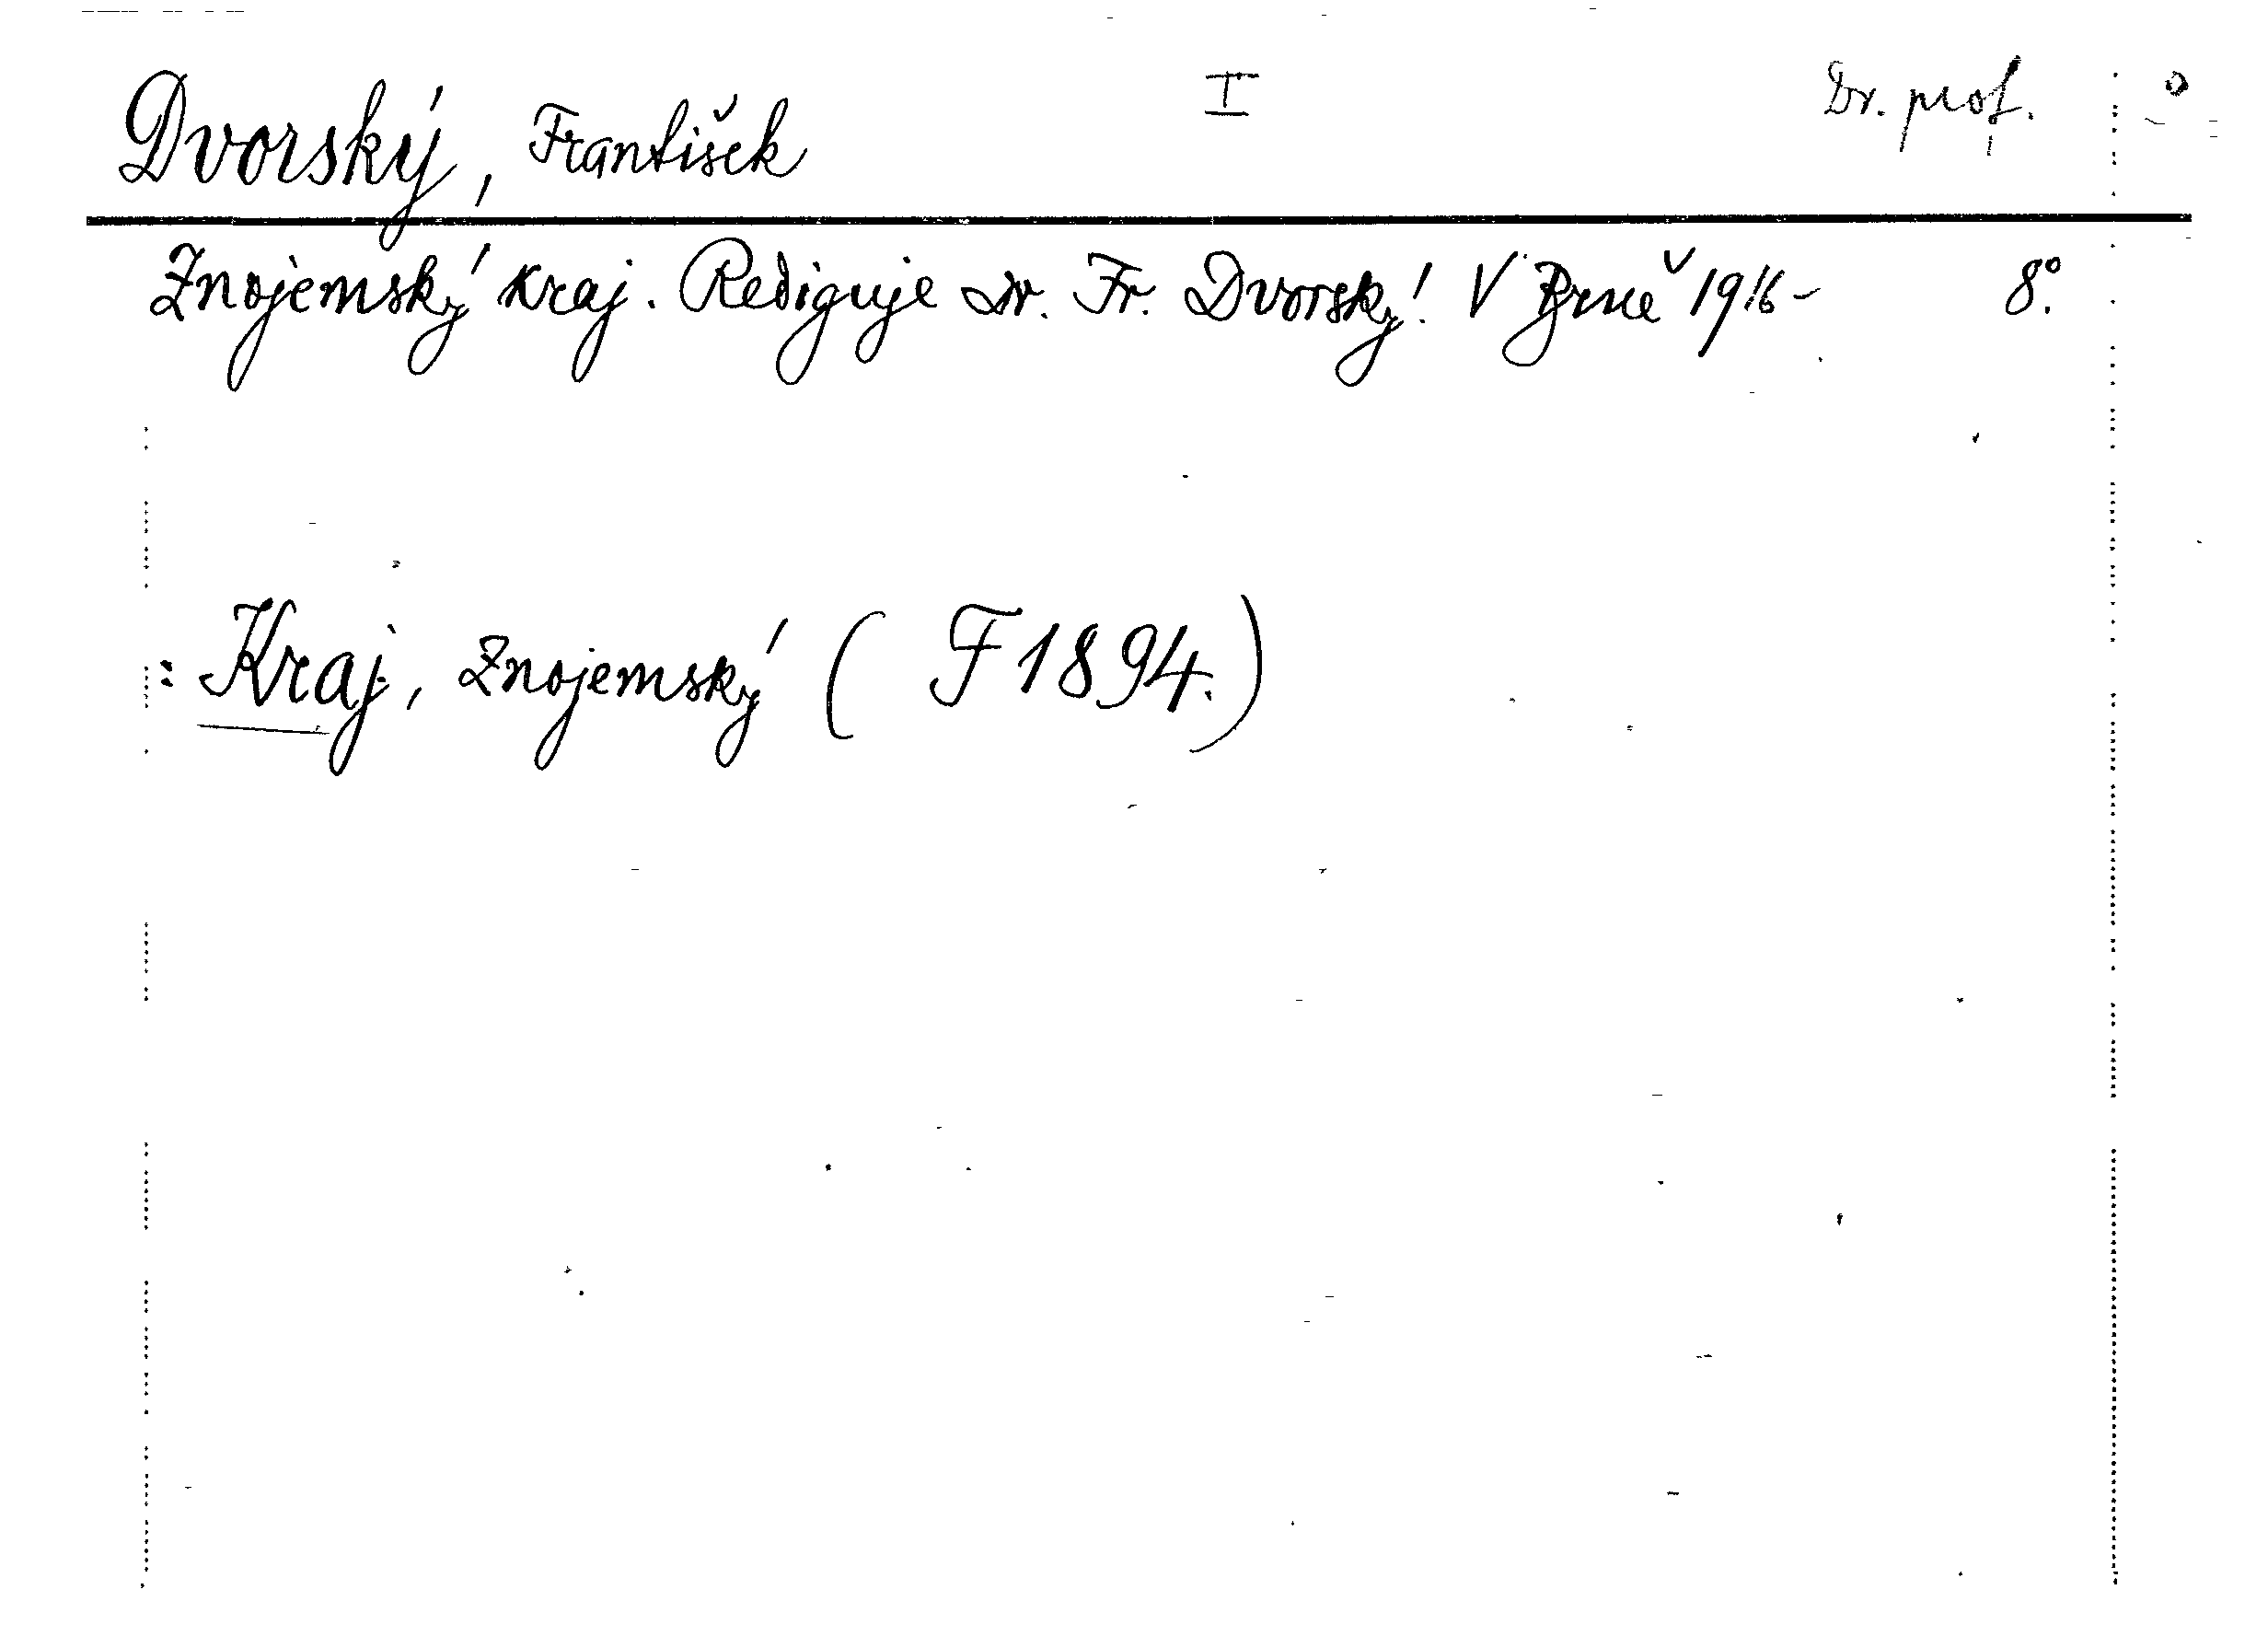 Dvorský, František I Dr. prof.
Znojemský kraj. Rediguje Dr. Fr. Dvorský. V Brně 1916- 8°.
: Kraj, Znojemský ( F 1894.)